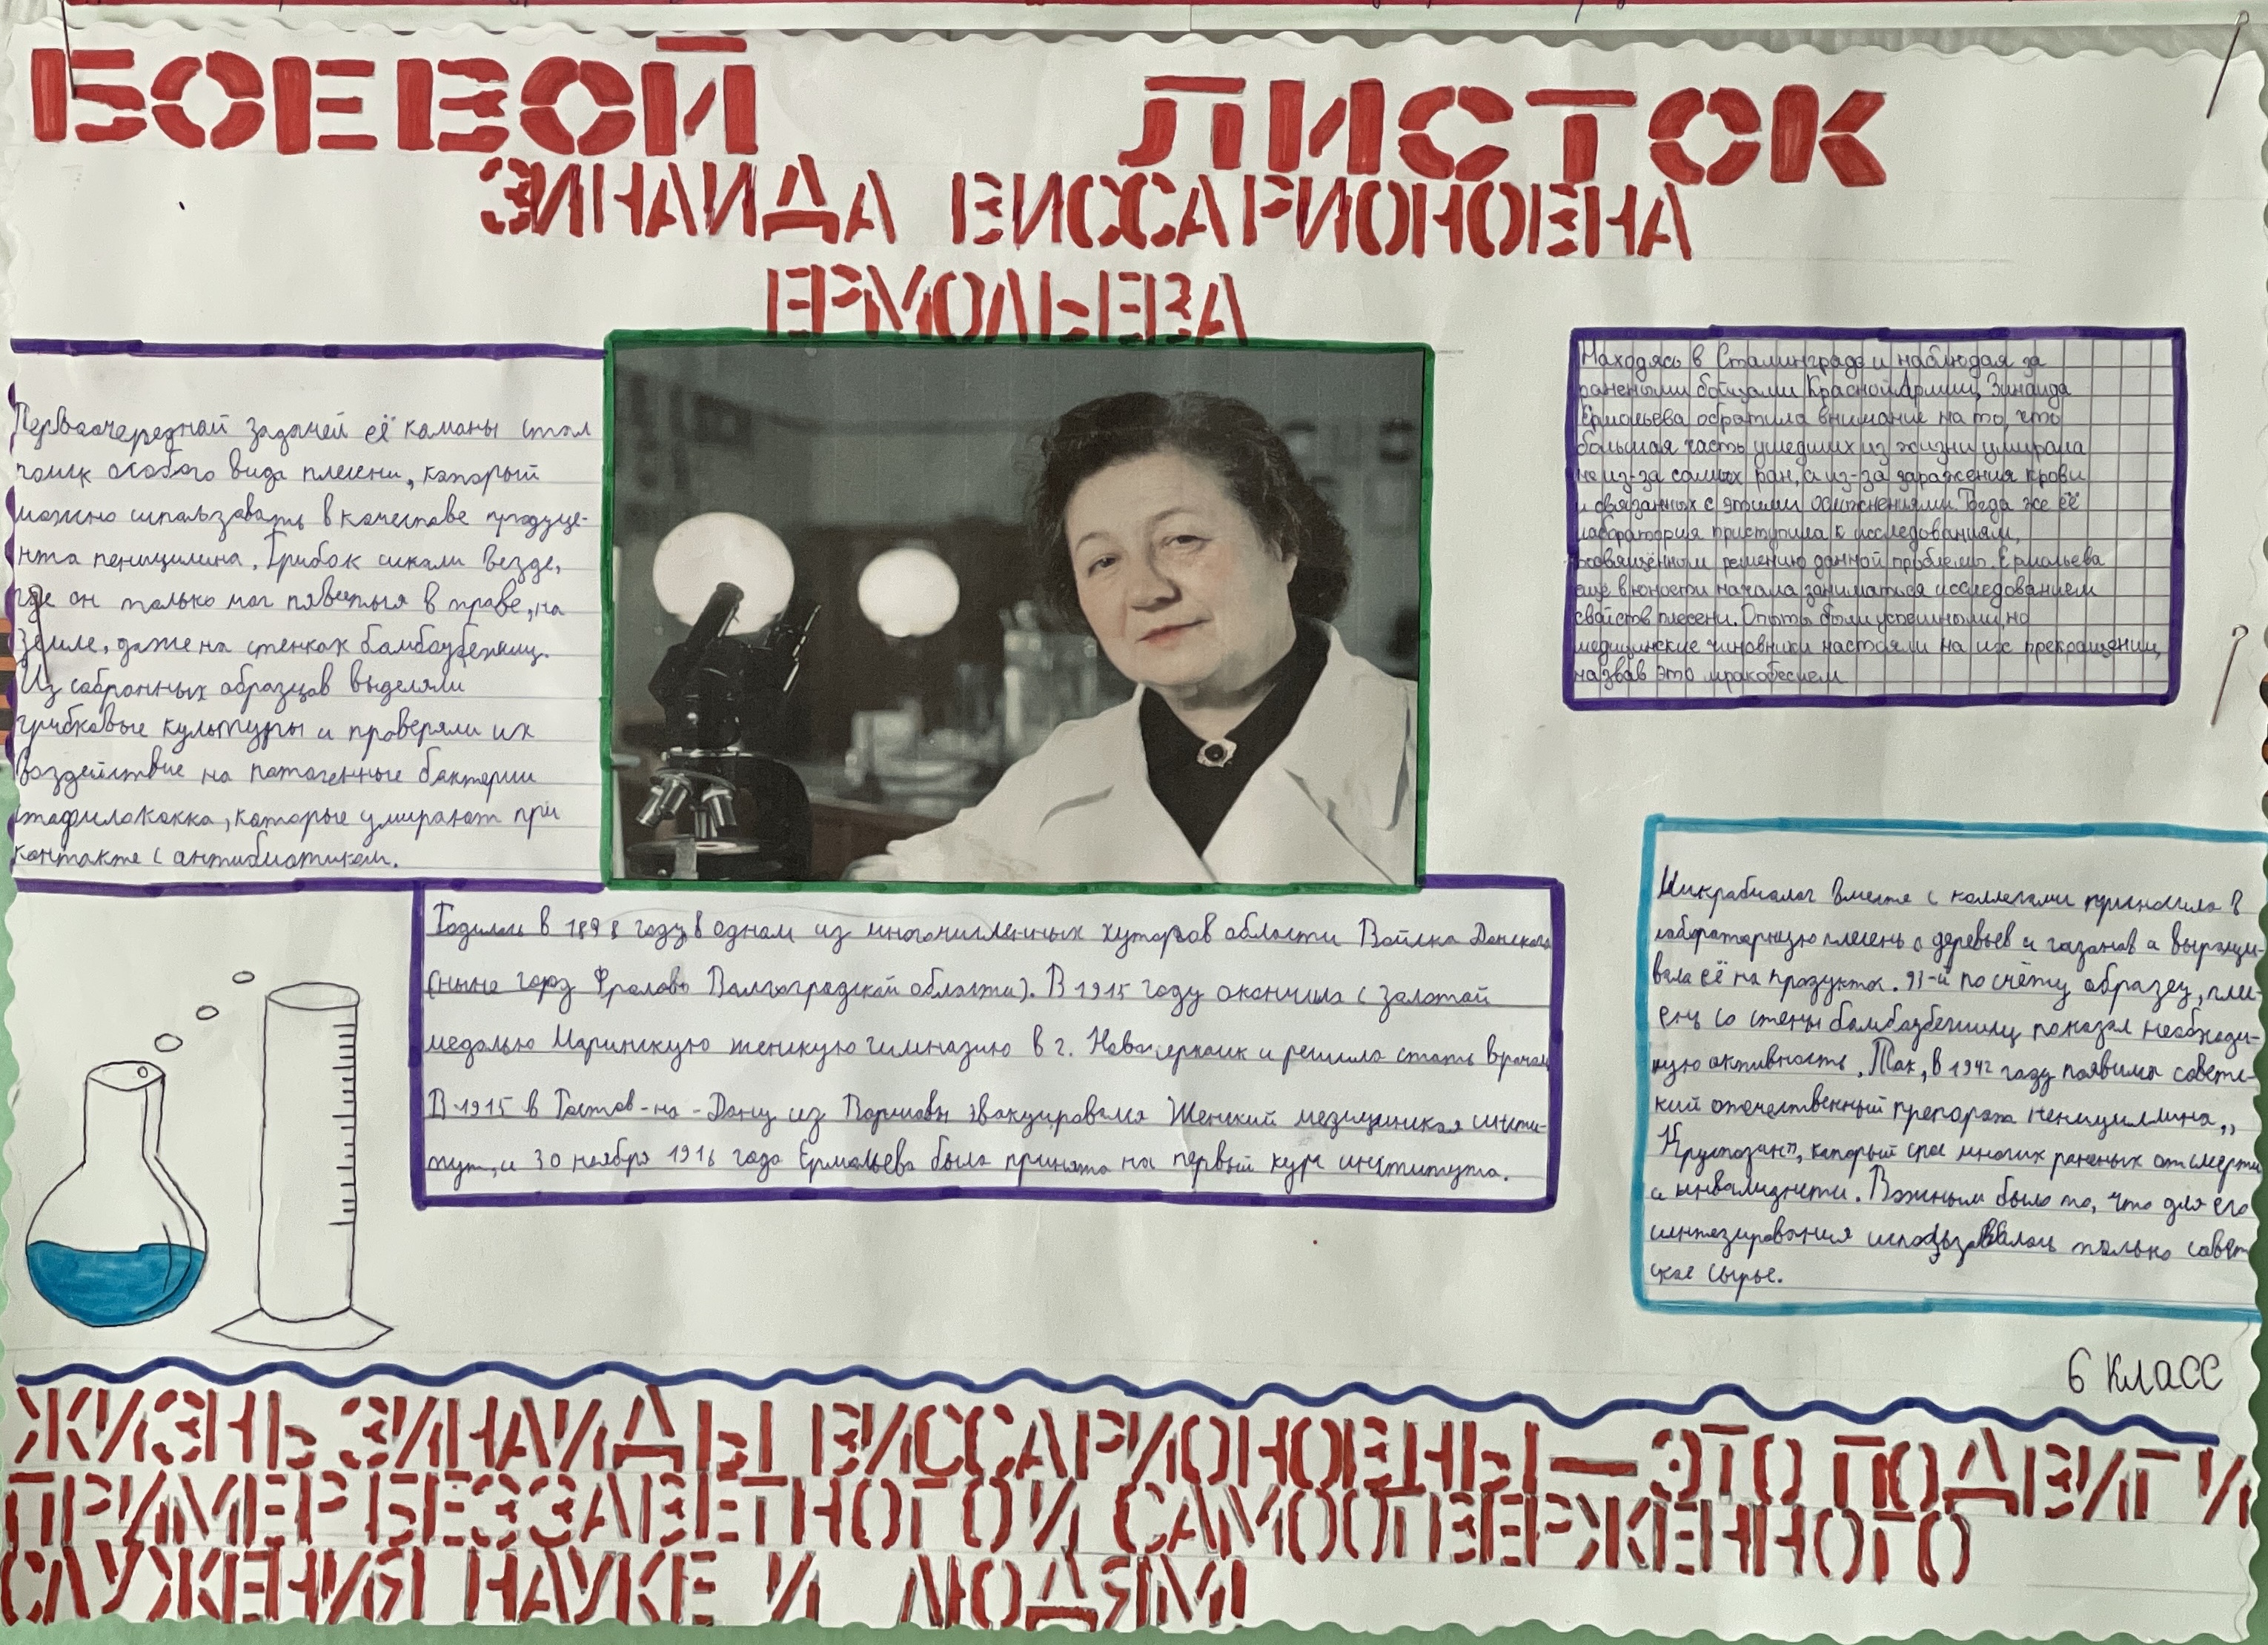 БОЕВОЙ ЛИСТОК
ЗИНАИДА ВИССАРИОНОВНА
ЕРМОЛЬЕВА
Первоочередной задачей её команы стал
поиск особого вида плесени, который
можно использавать в качестве продуце-
нта пеницилина. Грибок искали везде,
где он только мог пявиться в траве, на
земле, даже на стенках бамбоубежищ.
Из собранных образцов выделяли
грибковые культуры и проверяли их
воздействие на патогенные бактерии
стафилококка, которые умирают при
контакте с антибиотиком.
Находясь в Сталинграде и наблюдая за
ранеными бойцами Красной Армии, Зинаида
Ермольева обратила внимание на то, что
большая часть ушедших из жизни умирала
не из-за самых ран, а из-за заражения крови
и связанных с этими осложнениями. Тогда же её
лаборатория приступила к исследованиям,
посвящённом решению данной проблемы. Ермольева
ещё в юности начала заниматься исследованием
свойств плесени. Опыты были успешными, но
медицинские чиновники настояли на их прекращении,
назвав это мракобесием
Родилась в 1898 году в одном из многочисленных хуторов области Войска Донского
(ныне город Фролово Валгоградской области). В 1915 году окончила с золотой
медалью Мариинскую женскую гимназию в г. Новочеркасск и решила стать врачом
В 1915 в Ростов-на-Дону из Варшавы эвакуировался Женский медицинская инсти-
тут, и 30 ноября 1916 года Ермольева была принята на первый курс института.
Микробиолог вместе с коллегами приносила в
лабораторную плесень с деревьев и газонов и выращи-
вала её на продуктах. 93-й по счёту образец, пле-
сень со стены бамбоубежищу показал необходи-
мую активность. Так, в 1942 году появился советс-
кий отечественный препарат пенициллина,,
Крустозин", который спас многих раненых от смерти
и инвалидности. Важным было то, что для его
синтезирования использовалось только совет
ское сырье.
6 КЛАСС
ЖИЗНЬ ЗИНАИДЫ ВИССАРИОНОВНЫ — ЭТО ПОДВИГ И
ПРИМЕР БЕЗЗАВЕТНОГО И САМООТВЕРЖЕННОГО
СЛУЖЕНИЯ НАУКЕ И ЛЮДЯМ!